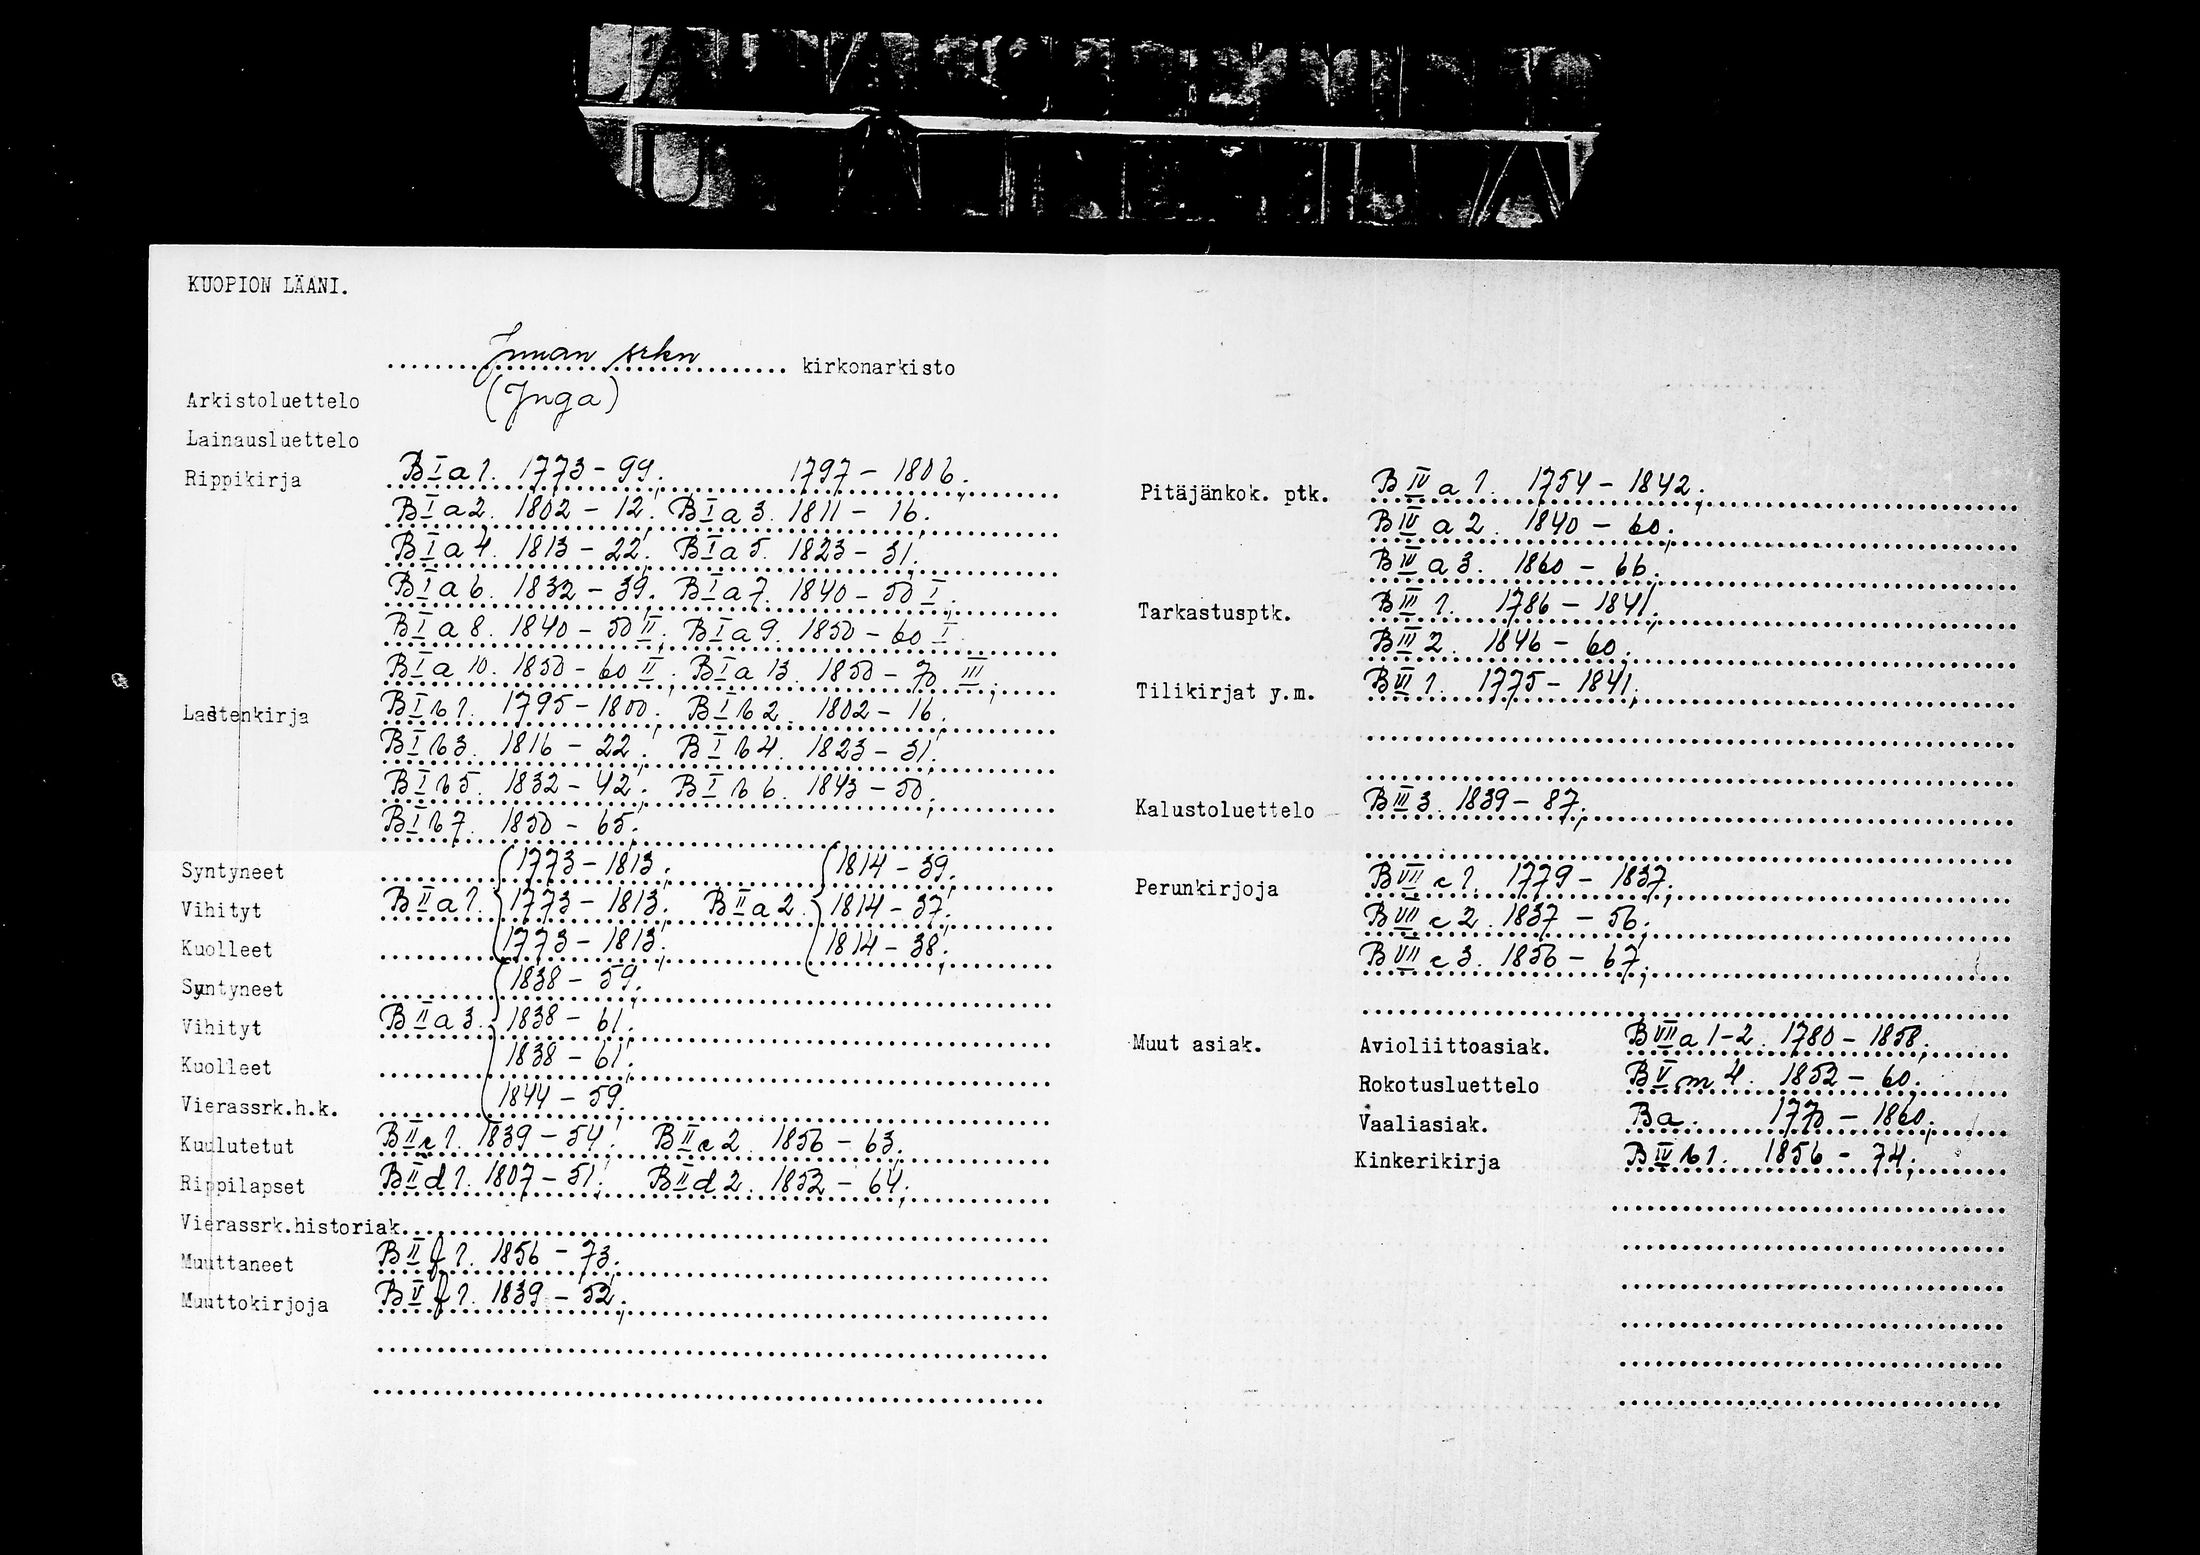 KUOPION LÄÄNI.
Junan srkn kirkonarkisto
Arkistoluettelo (Juga)
Lainausluettelo
Rippikirja B I a 1. 1773-99; 1797-1806;
B I a 2. 1802-12; B I a 3. 1811-16;
B I a 4. 1813-22; B I a 5. 1823-31;
B I a 6. 1832-39; B I a 7. 1840-50 I;
B I a 8. 1840-50 II; B I a 9. 1850-60 I
B I a 10. 1850-60 II; B I a 13. 1850-70 III;
Lastenkirja B I b 1. 1795-1800; B I b 2. 1802-16;
B I b 3. 1816-22; B I b 4. 1823-31;
B I b 5. 1832-42; B I b 6. 1843-50;
B I b 7. 1850-65;
Syntyneet 1773-1813; 1814-39;
Vihityt B II a 1. 1773-1813; B II a 2. 1814-37;
Kuolleet 1773-1813; 1814-38;
Syntyneet 1838-59;
Vihityt B II a 3. 1838-61;
Kuolleet 1838-61;
Vierassrk.h.k. 1844-59;
Kuulutetut B II c 1. 1839-54; B II c 2. 1856-63;
Rippilapset B II d 1. 1807-51; B II d 2. 1852-64;
Vierassrk.historiak.
Muuttaneet B II f 1. 1856-73;
Muuttokirjoja B V f 1. 1839-52;
Pitäjänkok. ptk. B IV a 1. 1754-1842;
B IV a 2. 1840-60;
B IV a 3. 1860-66;
Tarkastusptk. B III 1. 1786-1841;
B III 2. 1846-60;
Tilikirjat y.m. B VI 1. 1775-1841;
Kalustoluettelo B III 3. 1839-87;
Perunkirjoja B VII c 1. 1779-1837;
B VII c 2. 1837-56;
B VII c 3. 1856-67;
Muut asiak. Avioliittoasiak. B VII a 1-2. 1780-1858;
Rokotusluettelo B V m 4. 1852-60;
Vaaliasiak. Ba. 1770-1860;
Kinkerikirja B IV b 1. 1856-74;